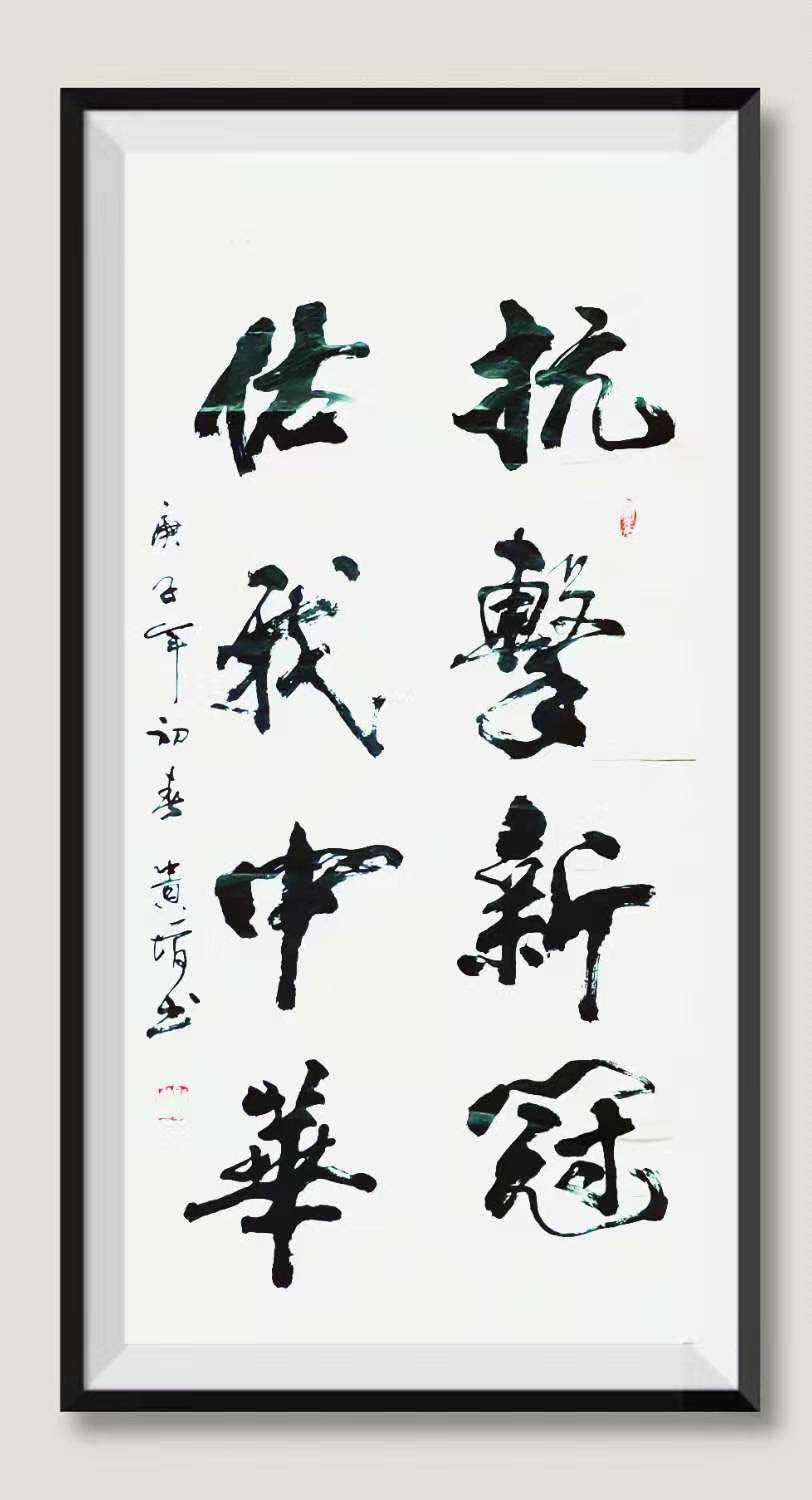 抗擊新冠
佑我中華
庚子年初春 貴堉书